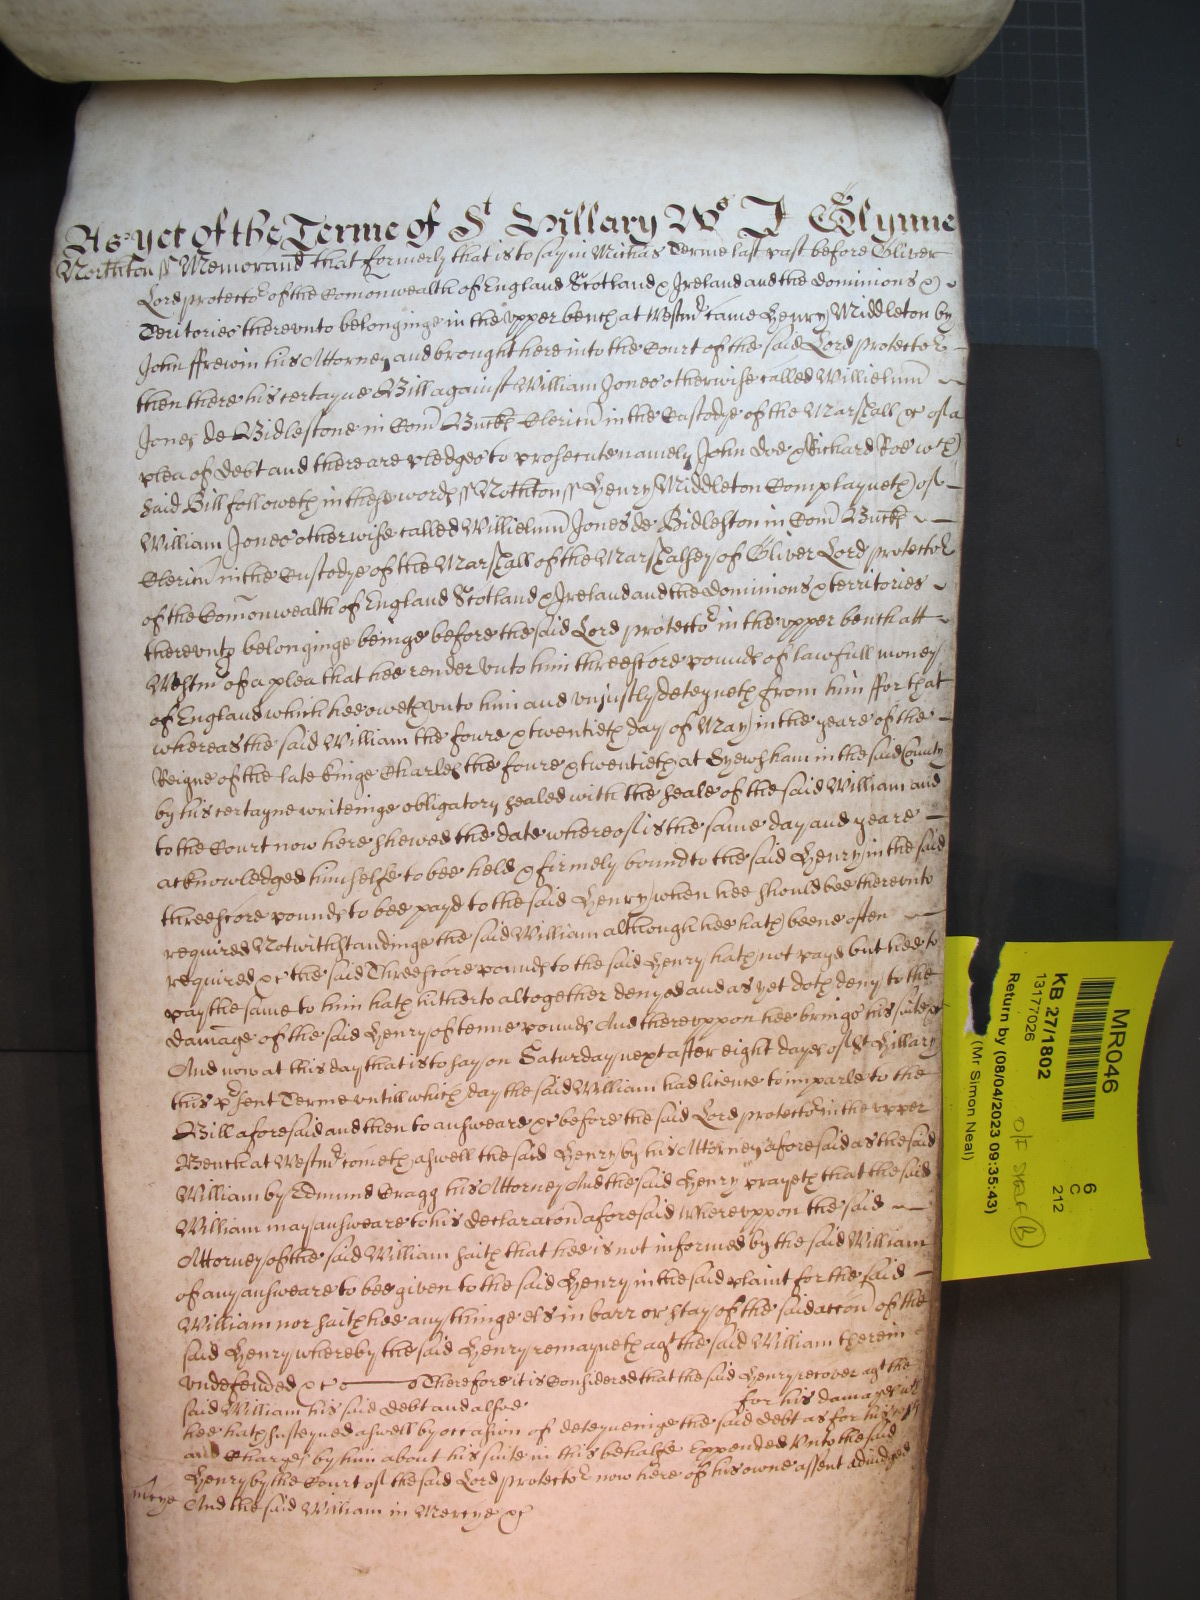 As yet of the Terme of St Hillary Ws J Glynne
Northton ss Memorand that formerly that is to say in Michas Terme last past before Oliver
Lord protector of the Comonwealth of England Scotland & Ireland and the dominions &
Teritories therevnto belonginge in the vpper bench at Westmr came Henry Middleton by
John ffrewin his Attorney and brought here into the Court of the said Lord protector
then there his certayne Bill against William Jones otherwise called Willielmu
Jones de Bidlestone in Com Buck Clericu in the Custodye of the Marshall &c of a
plea of debt and there are pledges to prosecute namely John Doe & Richard Roe wch
said Bill followeth in these words ss Northton ss Henry Middleton Complayneth of
William Jones otherwise called Willielmu Jones de Bidleston in Com Buck
Clericu in the Custodye of the Marshall of the Marshalsey of Oliver Lord protector
of the Comonwealth of England Scotland & Ireland and the dominions & territories
therevnto belonginge beinge before the said Lord protector in the vpper bench att
Westmr of a plea that hee render vnto him threescore pounds of lawfull money
of England which hee oweth vnto him and vnjustly deteyneth from him ffor that
whereas the said William the foure & twentieth day of May in the yeare of the
Reigne of the late Kinge Charles the foure & twentieth at in the said County
by his certayne writeinge obligatory sealed with the seale of the said William and
to the Court now here shewed the date whereof is the same day and yeare
acknowledged himselfe to bee held & firmely bound to the said Henry in the said
threescore pounds to bee payd to the said Henry when hee should bee therevnto
required Notwithstandinge the said William although hee hath beene often
required &c the said Threescore pounds to the said Henry hath not payd but hee to
pay the same to him hath hitherto altogether denyed and as yet doth deny to the
damage of the said Henry of tenne pounds And therevppon hee brings his suite &c
And now at this day that is to say on Saturday next after eight dayes of St Hillary
this psent Terme vntill which day the said William had licence to imparle to the
Bill aforesaid and then to answeare &c before the said Lord protector in the vpper
Bench at Westmr cometh aswell the said Henry by his Attorney aforesaid as the said
William by Edmund Bragg his Attorney And the said Henry prayeth that the said
William may answeare to his declaracon aforesaid Wherevppon the said
Attorney of the said William saith that hee is not informed by the said William
of any answeare to bee given to the said Henry in the said plaint for the said
William nor saith hee any thinge els in barr or stay of the said accon of the
said Henry whereby the said Henry remayneth agt the said William therein
vndefended &c Therefore it is Considered that the said Henry recover agt the
said William his said debt and alsoe for his damages wch
hee hath susteyned aswell by occasion of deteyneinge the said debt as for his costs
and Charges by him about his suite in this behalfe Expended Vnto the said
Henry by the Court of the said Lord protector now here of his owne assent adiudged
mcye And the said William in Mercye &c
MR046
6
C
212
KB 27/1802
13177026
Return by (08/04/2023 09:35:43)
(Mr Simon Neal)
O/F SHELF (B)